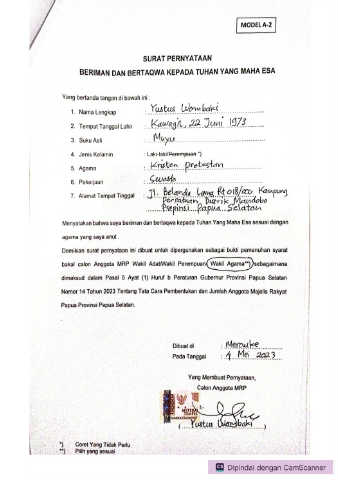 MODEL A-2
SURAT PERNYATAAN
BERIMAN DAN BERTAQWA KEPADA TUHAN YANG MAHA ESA
Yang bertanda tangan di bawah ini :
1. Nama Lengkap : Yustus Wombaki
2. Tempat Tanggal Lahir : 22 Juni 1973
3. Suku Asli : Muyu
4. Jenis Kelamin : Laki-laki/Perempuan *)
5. Agama : Kristen Protestan
6. Pekerjaan : Swasta
7. Alamat Tempat Tinggal : Jl. Belanda Lama Rt 018/
Distrik
Propinsi Papua Selatan
Menyatakan bahwa saya beriman dan bertaqwa kepada Tuhan Yang Maha Esa sesuai dengan
agama yang saya anut.
Demikian surat pernyataan ini dibuat untuk dipergunakan sebagai bukti pemenuhan syarat
bakal calon Anggota MRP Wakil Adat/Wakil Perempuan/Wakil Agama**) sebagaimana
dimaksud dalam Pasal 5 Ayat (1) Huruf b Peraturan Gubernur Provinsi Papua Selatan
Nomor 14 Tahun 2023 Tentang Tata Cara Pembentukan dan Jumlah Anggota Majelis Rakyat
Papua Provinsi Papua Selatan.
Dibuat di : Merauke
Pada Tanggal : 4 Mei 2023
Yang Membuat Pernyataan,
Calon Anggota MRP
( Yustus Wombaki )
*) Coret Yang Tidak Perlu
**) Pilih yang sesuai
Dipindai dengan CamScanner